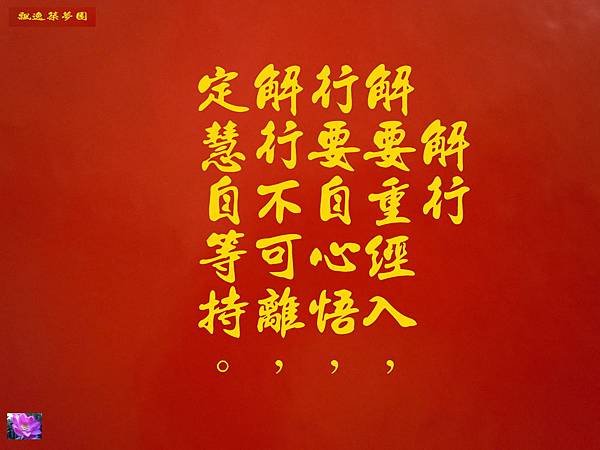 飄逸築夢園
解行
解要重經入，
行要自心悟，
解行不可離，
定慧自等持。